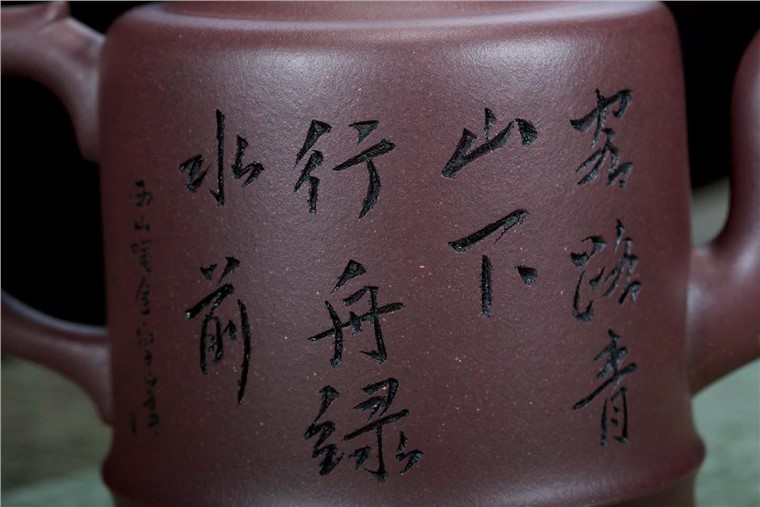 客路青
山下
行舟绿
水前